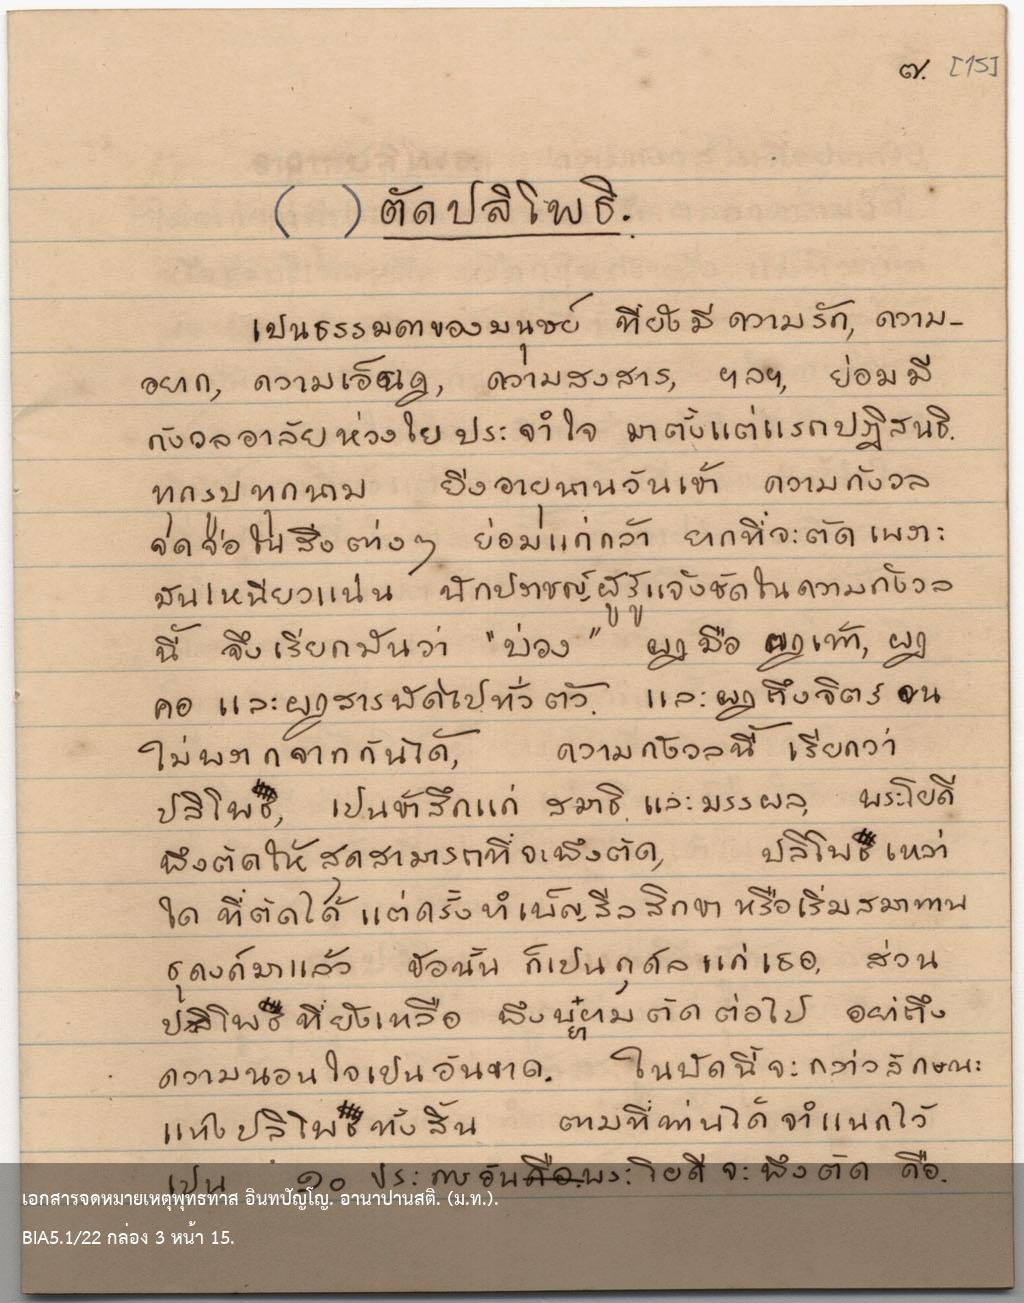 ๗. [15]
( ) ตัดปลิโพธิ.
เปนธรรมดาของมนุษย์ ที่ยังมี ความรัก, ความ-
อยาก, ความเอ็นดู, ความสงสาร, ฯลฯ, ย่อมมี
กังวลอาลัยห่วงใย ประจำใจ มาตั้งแต่แรกปฏิสนธิ.
ทุกรูปทุกนาม ยิ่งอายุนานวันเข้า ความกังวล
จดจ่อในสิ่งต่างๆ ย่อมแก่กล้า ยากที่จะตัด เพราะ
มันเหนียวแน่น นักปราชญ์ผู้รู้แจ้งชัดในความกังวล
นี้ จึงเรียกมันว่า "บ่วง" ผูกมือ ผูกเท้า, ผูก
คอ และผูกสารพัดไปทั่วตัว. และผูกถึงจิตร จน
ไม่พรากจากกันได้, ความกังวลนี้ เรียกว่า
ปลิโพธิ, เปนข้าสึกแก่ สมาธิ และมรรผล, พระโยคี
พึงตัดให้สุดสามารถที่จะพึงตัด, ปลิโพธิเหล่า
ใด ที่ตัดได้ แต่ครั้งบำเพ็ญสีลสิกขา หรือเริ่มสมาทาน
ธุดงค์มาแล้ว ข้อนั้น ก็เปนกุศลแก่เธอ, ส่วน
ปลิโพธิที่ยังเหลือ พึงพยายาม ตัดต่อไป อย่าถึง
ความนอนใจเปนอันขาด. ในบัดนี้จะกล่าวลักษณะ
แห่งปลิโพธิทั้งสิ้น ตามที่ท่านได้จำแนกไว้
เปน ๑๐ ประการอันพระโยคีจะพึงตัด คือ.
เอกสารจดหมายเหตุพุทธทาส อินทปัญโญ. อานาปานสติ. (ม.ท.).
BIA5.1/22 กล่อง 3 หน้า 15.